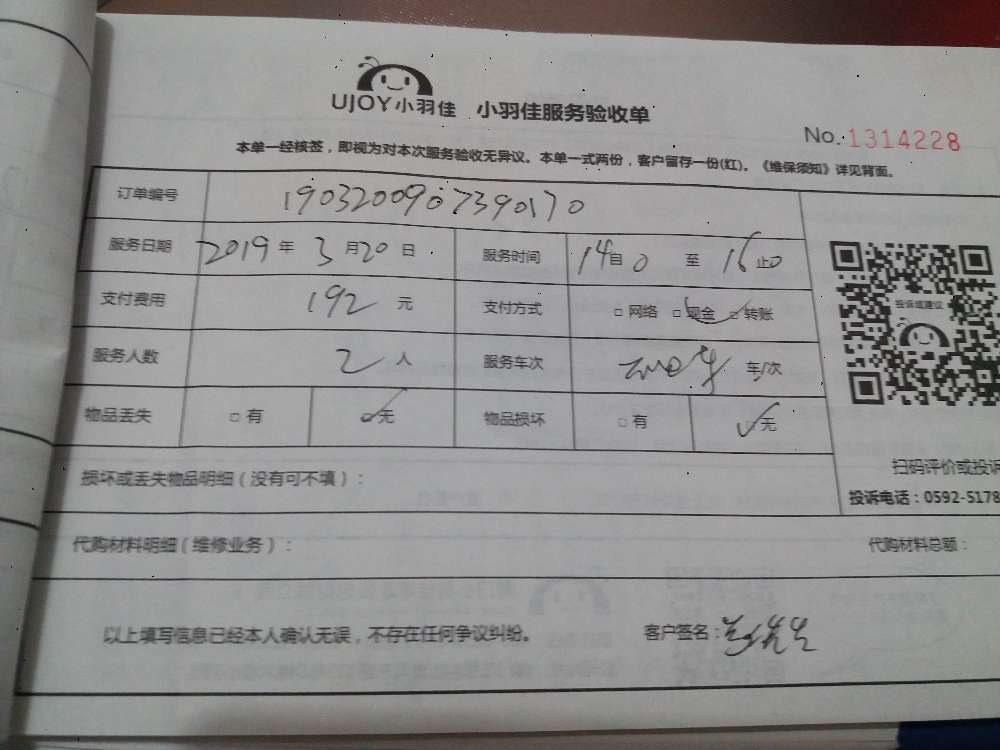 UJOY小羽佳 小羽佳服务验收单
No.1314228
本单一经核签，即视为对本次服务验收无异议。本单一式两份，客户留存一份(红)。《维保须知》详见背面。
订单编号 1903200907390170
服务日期 2019年3月20日 服务时间 14自0至16止0
支付费用 192元 支付方式 □网络 □现金 □转账
服务人数 2人 服务车次 车/次
物品丢失 □有 □无 物品损坏 □有 □无
投诉或建议
扫码评价或投诉
投诉电话：0592-5178
损坏或丢失物品明细（没有可不填）：
代购材料明细（维修业务）： 代购材料总额：
以上填写信息已经本人确认无误，不存在任何争议纠纷。 客户签名：